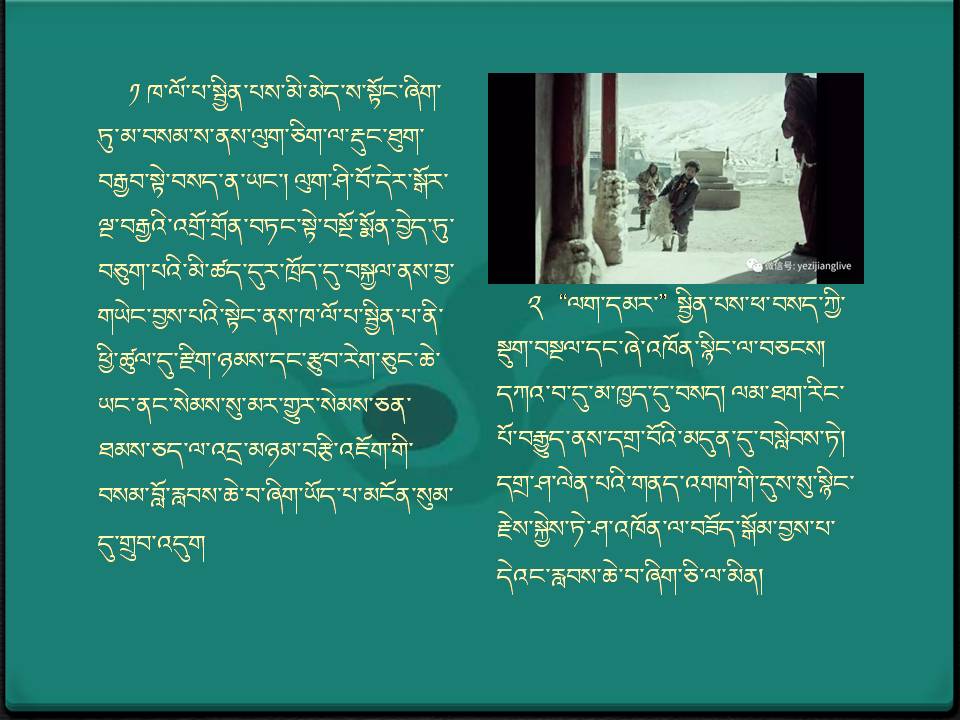 ༡ ཁ་ལོ་པ་སྦྱིན་པས་མི་མེད་ས་སྟོང་ཞིག་
ཏུ་མ་བསམ་ས་ནས་ལུག་ཅིག་ལ་རྡུང་ཐུག་
བརྒྱབ་སྟེ་བསད་ན་ཡང་། ལུག་ཤི་བོ་དེར་སྒོར་
ལྔ་བརྒྱའི་འགྲོ་གྲོན་བཏང་སྟེ་བསྔོ་སྨོན་བྱེད་ཏུ་
བཅུག་པའི་མི་ཚད་དུར་ཁྲོད་དུ་བསྐྱལ་ནས་བྱ་
གཡེང་བྱས་པའི་སྟེང་ནས་ཁ་ལོ་པ་སྦྱིན་པ་ནི་
ཕྱི་ཚུལ་དུ་རྫིག་ཉམས་དང་རྩུབ་རེག་ཅུང་ཆེ་
ཡང་ནང་སེམས་སུ་མར་གྱུར་སེམས་ཅན་
ཐམས་ཅད་ལ་འདྲ་མཉམ་བརྩི་འཇོག་གི་
བསམ་བློ་རླབས་ཆེ་བ་ཞིག་ཡོད་པ་མངོན་སུམ་
དུ་གྲུབ་འདུག
微信号: yezijianglive
༢ “ལག་དམར་” སྦྱིན་པས་ཕ་བསད་ཀྱི་
སྡུག་བསྔལ་དང་ཞེ་འཁོན་སྙིང་ལ་བཅངས།
དཀའ་བ་དུ་མ་ཁྱད་དུ་བསད། ལམ་ཐག་རིང་
པོ་བརྒྱུད་ནས་དགྲ་བོའི་མདུན་དུ་བསླེབས་ཏེ།
དགྲ་ཤ་ལེན་པའི་གནད་འགག་གི་དུས་སུ་སྙིང་
རྗེས་སྐྱེས་ཏེ་ཤ་འཁོན་ལ་བཟོད་སྒོམ་བྱས་པ་
དེའང་རླབས་ཆེ་བ་ཞིག་ཅི་ལ་མིན།